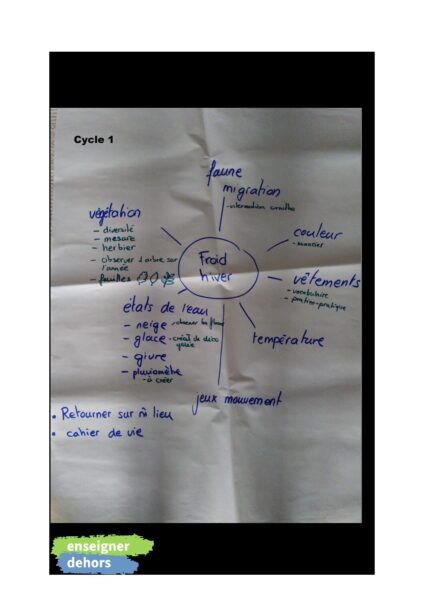 Cycle 1
faune
migration
- intervention
végétation
- diversité
- mesure
- herbier
- observer 1 arbre sur
l'année
- feuilles
couleur
- nuancier
Froid
hiver
vêtements
- vocabulaire
- pratico-pratique
états de l'eau
- neige - observer les flocons
- glace - créat° de déco
glacée
- givre
- pluviomètre
- à créer
température
jeux mouvement
• Retourner sur m̂ lieu
• cahier de vie
enseigner
dehors